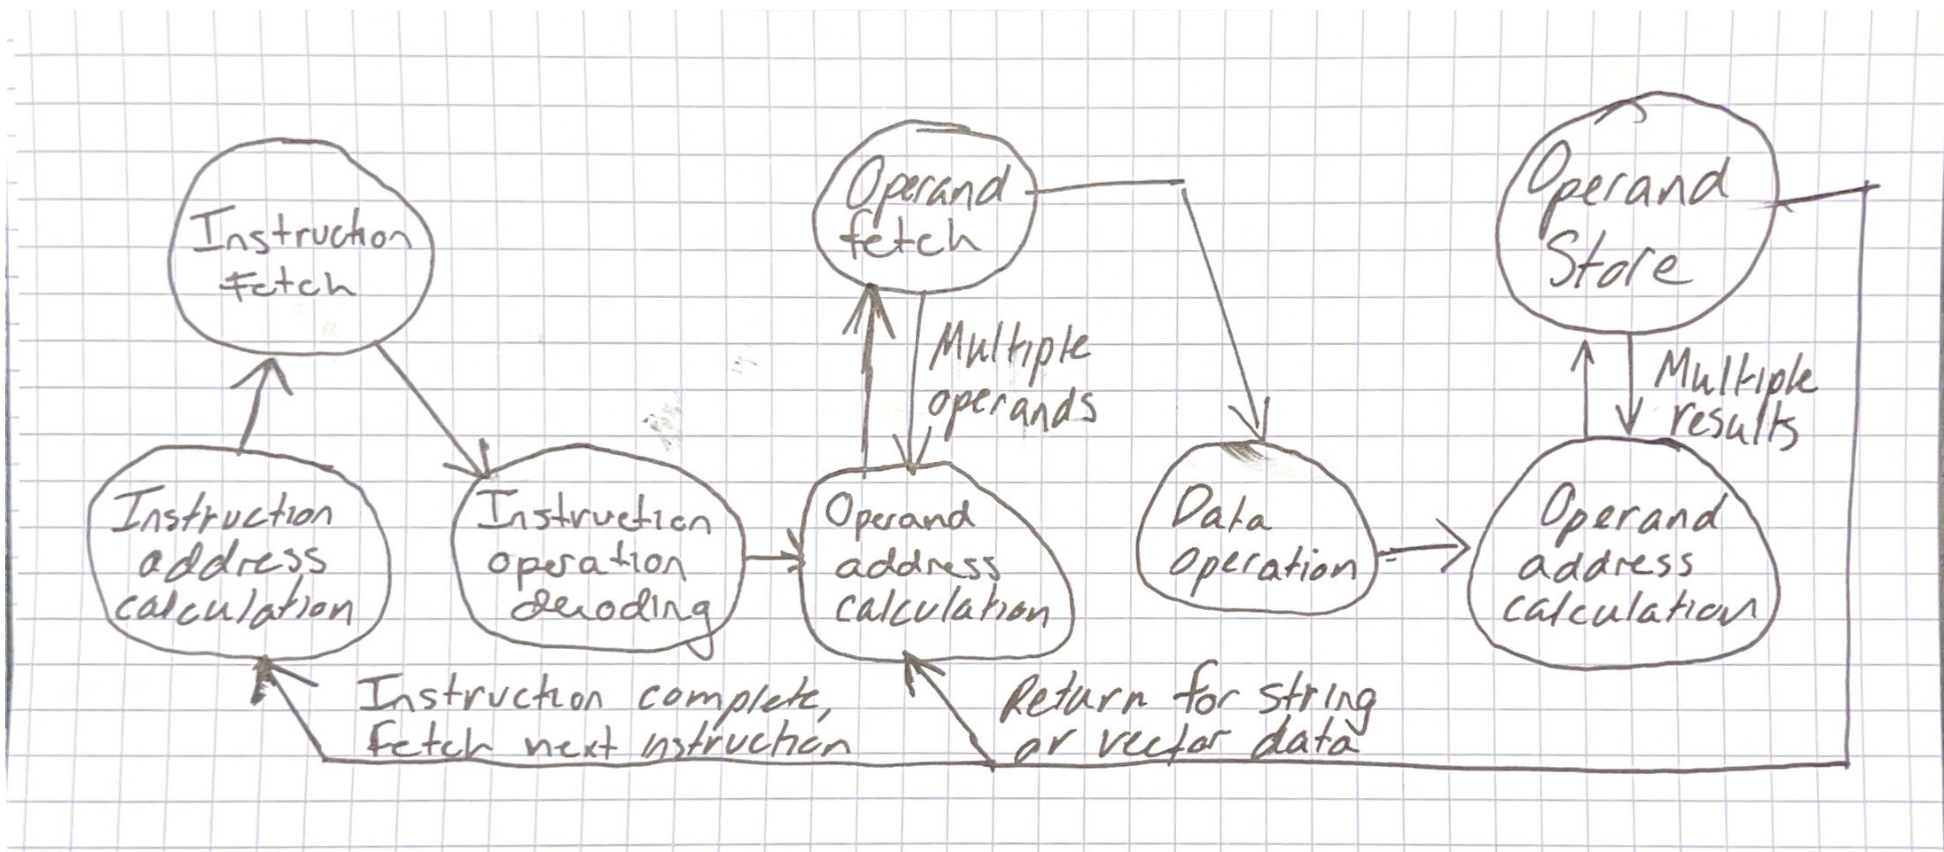 Instruction
fetch
Operand
fetch
Operand
Store
Multiple
operands
Multiple
results
Instruction
address
calculation
Instruction
operation
decoding
Operand
address
calculation
Data
operation
Operand
address
calculation
Instruction complete,
fetch next nstruction
Return for string
or vector data